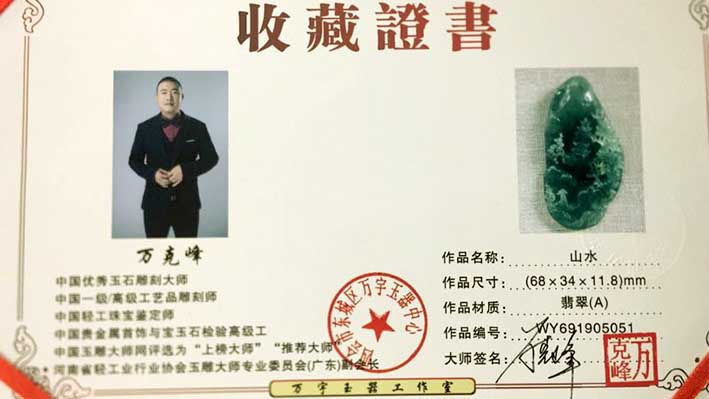 收藏證書
万克峰
中国优秀玉石雕刻大师
中国一级/高级工艺品雕刻师
中国轻工珠宝鉴定师
中国贵金属首饰与宝玉石检验高级工
中国玉雕大师网评选为“上榜大师”“推荐大师”
河南省轻工业行业协会玉雕大师专业委员会(广东)副会长
会市东城区万宇玉器中心
作品名称: 山水
作品尺寸: (68×34×11.8)mm
作品材质: 翡翠(A)
作品编号: WY691905051
大师签名: 万克峰
万克峰
万宇玉器工作室